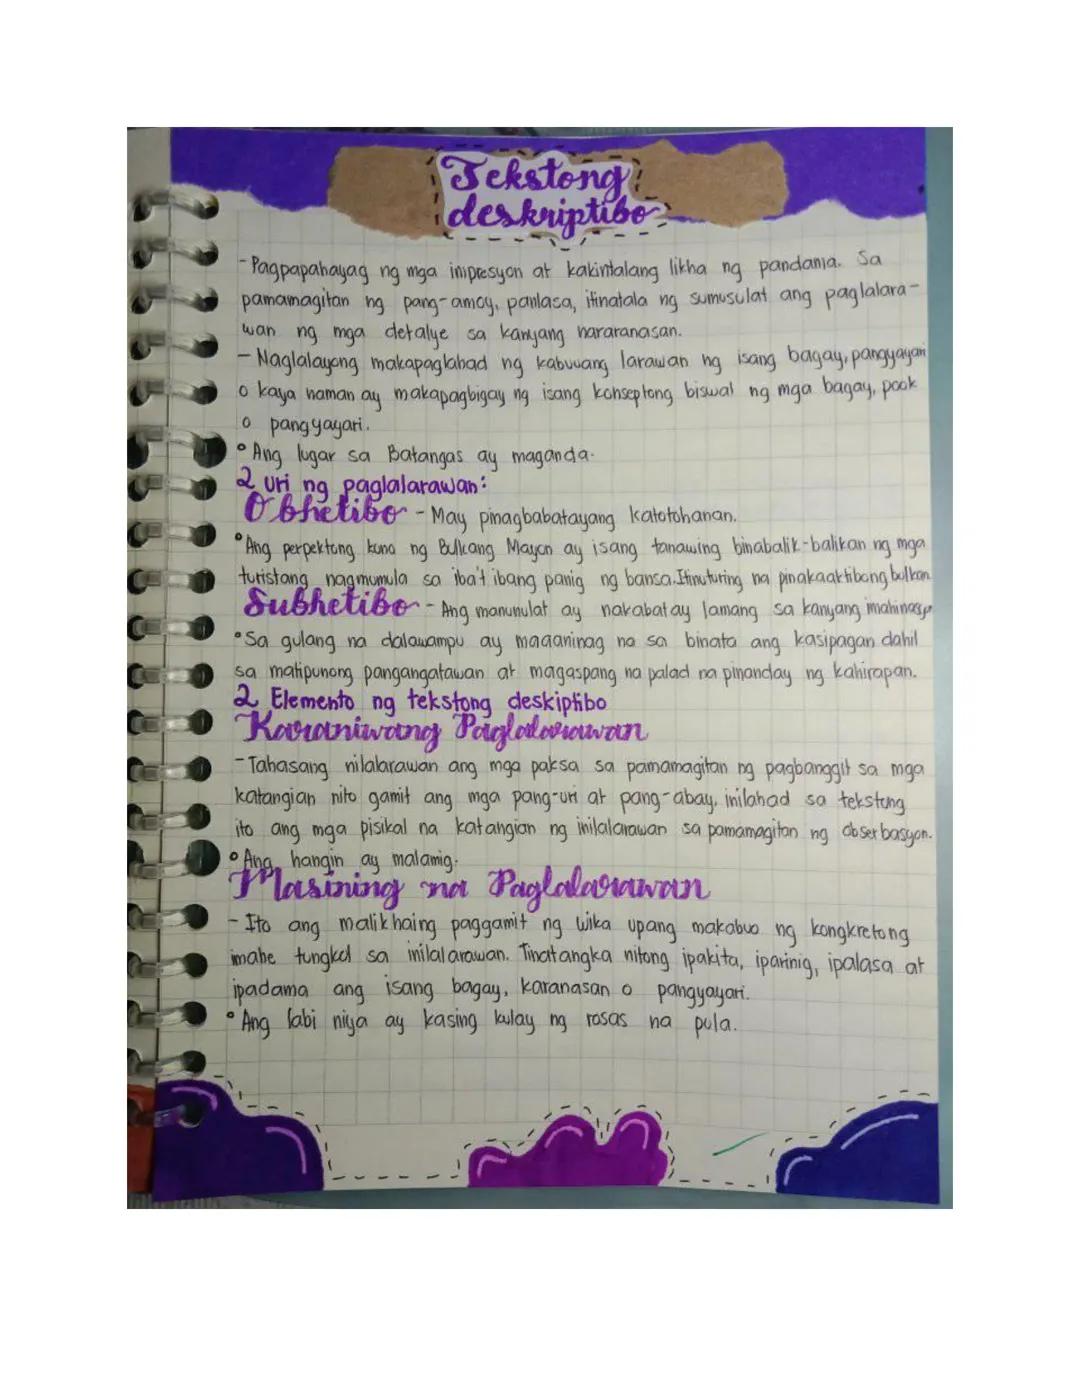 Tekstong
deskriptibo
- Pagpapahayag ng mga impresyon at kakintalang likha ng pandama. Sa
pamamagitan ng pang-amoy, panlasa, itinatala ng sumusulat ang paglalara-
wan ng mga detalye sa kanyang nararanasan.
- Naglalayong makapaglahad ng kabuuang larawan ng isang bagay, pangyayari
o kaya naman ay makapagbigay ng isang konseptong biswal ng mga bagay, pook
o pangyayari.
° Ang lugar sa Batangas ay maganda.
2 uri ng paglalarawan:
Obhetibo - May pinagbabatayang katotohanan.
° Ang perpektong kuno ng Bulkang Mayon ay isang tanawing binabalik-balikan ng mga
turistang nagmumula sa iba't ibang panig ng bansa. Itinuturing na pinakaaktibong bulkan
Subhetibo - Ang manunulat ay nakabatay lamang sa kanyang
° Sa gulang na dalawampu ay maaaninag na sa binata ang kasipagan dahil
sa matipunong pangangatawan at magaspang na palad na pinanday ng kahirapan.
2 Elemento ng tekstong deskiptibo
Karaniwang Paglalarawan
- Tahasang nilalarawan ang mga paksa sa pamamagitan ng pagbanggit sa mga
katangian nito gamit ang mga pang-uri at pang-abay, inilahad sa tekstong
ito ang mga pisikal na katangian ng inilalarawan sa pamamagitan ng obserbasyon.
° Ang hangin ay malamig.
Masining na Paglalarawan
- Ito ang malikhaing paggamit ng wika upang makabuo ng kongkretong
imahe tungkol sa inilalarawan. Tinatangka nitong ipakita, iparinig, ipalasa at
ipadama ang isang bagay, karanasan o pangyayari.
° Ang labi niya ay kasing kulay ng rosas na pula.